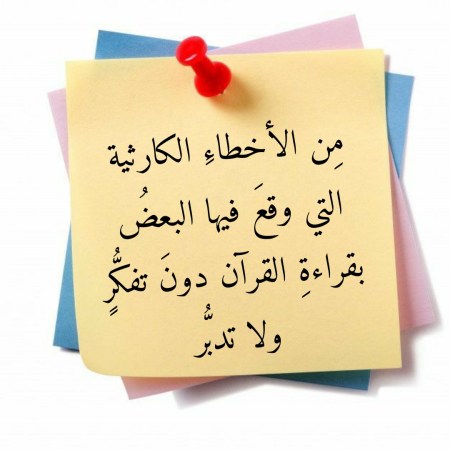 مِن الأخطاءِ الكارثية
التي وقعَ فيها البعضُ
بقراءةِ القرآن دونَ تفكُّرٍ
ولا تدبُّر